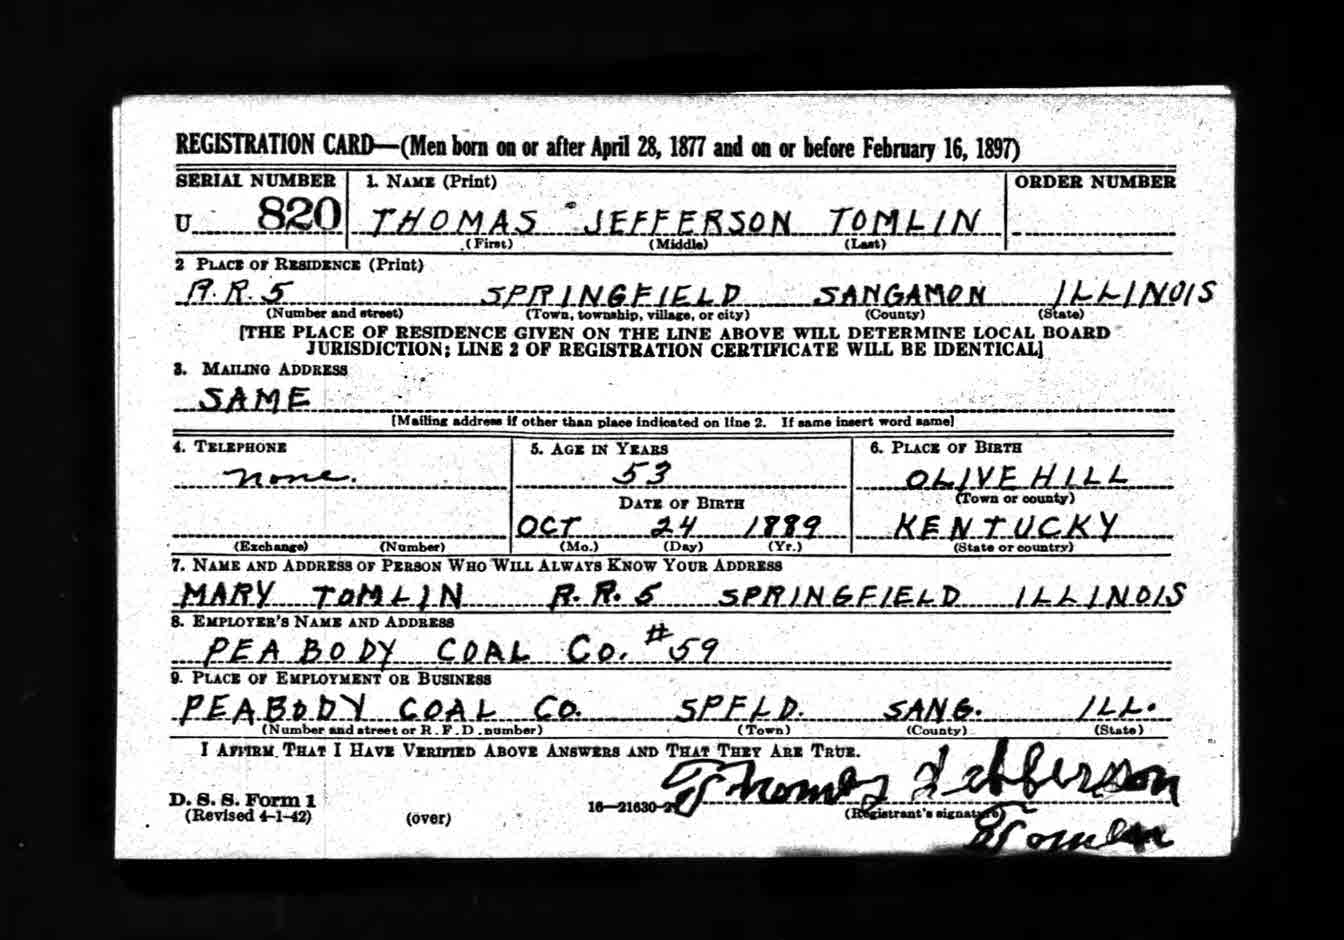 REGISTRATION CARD—(Men born on or after April 28, 1877 and on or before February 16, 1897)
SERIAL NUMBER 1. NAME (Print) ORDER NUMBER
U 820 THOMAS JEFFERSON TOMLIN
(First) (Middle) (Last)
2 PLACE OF RESIDENCE (Print)
R.R.5 SPRINGFIELD SANGAMON ILLINOIS
(Number and street) (Town, township, village, or city) (County) (State)
[THE PLACE OF RESIDENCE GIVEN ON THE LINE ABOVE WILL DETERMINE LOCAL BOARD
JURISDICTION; LINE 2 OF REGISTRATION CERTIFICATE WILL BE IDENTICAL]
3. MAILING ADDRESS
SAME
[Mailing address if other than place indicated on line 2. If same insert word same]
4. TELEPHONE 5. AGE IN YEARS 6. PLACE OF BIRTH
none. 53 OLIVE HILL
DATE OF BIRTH (Town or county)
OCT 24 1889 KENTUCKY
(Exchange) (Number) (Mo.) (Day) (Yr.) (State or country)
7. NAME AND ADDRESS OF PERSON WHO WILL ALWAYS KNOW YOUR ADDRESS
MARY TOMLIN R.R. 5 SPRINGFIELD ILLINOIS
8. EMPLOYER'S NAME AND ADDRESS
PEABODY COAL Co. #59
9. PLACE OF EMPLOYMENT OR BUSINESS
PEABODY COAL CO. SPFLD. SANG. ILL.
(Number and street or R. F. D. number) (Town) (County) (State)
I AFFIRM THAT I HAVE VERIFIED ABOVE ANSWERS AND THAT THEY ARE TRUE.
Thomas Jefferson
D. S. S. Form 1 16—21630-2
(Revised 4-1-42) (over) (Registrant's signature)